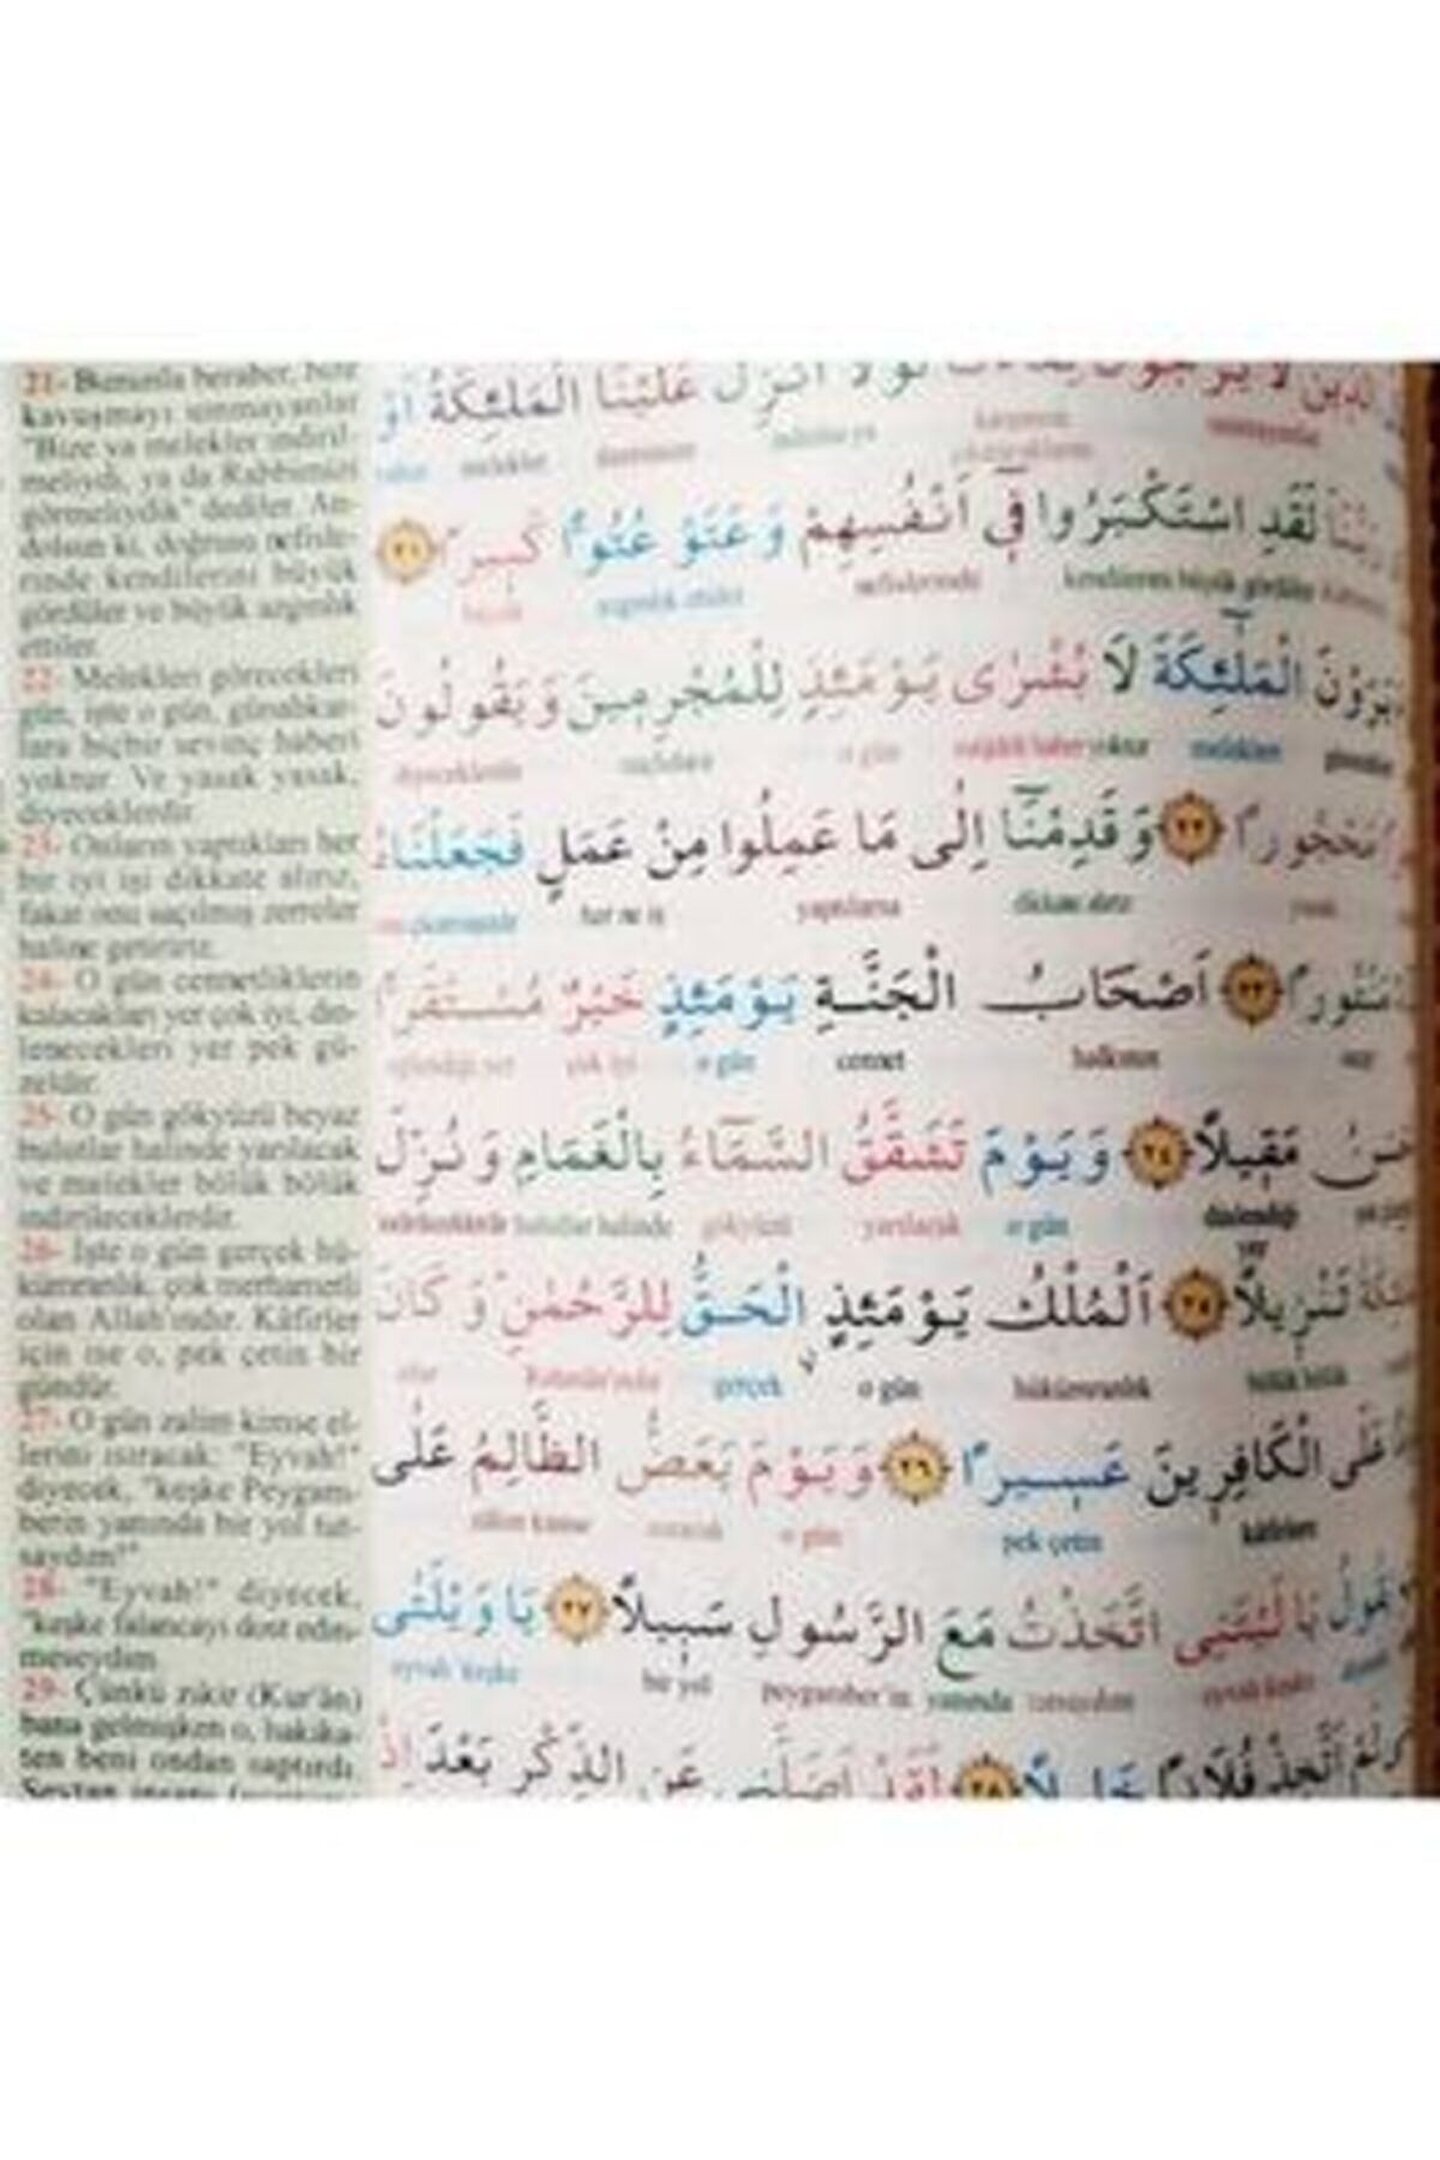 21- Bununla beraber, bize
kavuşmayı ummayanlar
"Bize ya melekler indiril-
meliydi, ya da Rabbimizi
görmeliydik" dediler. An-
dolsun ki, doğrusu nefisle-
rinde kendilerini büyük
gördüler ve büyük azgınlık
ettiler.
22- Melekleri görecekleri
gün, işte o gün, günahkar-
lara hiçbir sevinç haberi
yoktur. Ve yasak yasak,
diyeceklerdir.
23- Onların yaptıkları her
bir iyi işi dikkate alırız,
fakat onu saçılmış zerreler
haline getiririz.
24- O gün cennetliklerin
kalacakları yer çok iyi, din-
lenecekleri yer pek gü-
zeldir.
25- O gün gökyüzü beyaz
bulutlar halinde yarılacak
ve melekler bölük bölük
indirileceklerdir.
26- İşte o gün gerçek hü-
kümranlık, çok merhametli
olan Allah'ındır. Kâfirler
için ise o, pek çetin bir
gündür.
27- O gün zalim kimse el-
lerini ısıracak: "Eyvah!"
diyecek, "keşke Peygam-
berin yanında bir yol tut-
saydım!"
28- "Eyvah!" diyecek,
"keşke falancayı dost edin-
meseydim
29- Çünkü zikir (Kur'ân)
bana gelmişken o, hakika-
ten beni ondan saptırdı.
Şeytan insanı
عَلَيْنَا الْمَلٰٓئِكَةُ اَوْ
melekler
لَقَدِ اسْتَكْبَرُوا فٓي اَنْفُسِهِمْ وَعَتَوْ عُتُوًّا كَبيرًا ﴿٢١﴾
kendilerini büyük gördüler nefislerinde azgınlık ettiler büyük
يَرَوْنَ الْمَلٰٓئِكَةَ لَا بُشْرٰى يَوْمَئِذٍ لِلْمُجْرِمينَ وَيَقُولُونَ
görürler melekleri yoktur o gün diyeceklerdir
مَحْجُورًا ﴿٢٢﴾ وَقَدِمْنَٓا اِلٰى مَا عَمِلُوا مِنْ عَمَلٍ فَجَعَلْنَاهُ
yasak dikkate alırız yaptılarsa her ne iş
مَنْثُورًا ﴿٢٣﴾ اَصْحَابُ الْجَنَّةِ يَوْمَئِذٍ خَيْرٌ مُسْتَقَرًّا
halkının cennet o gün çok iyi
مَقيلًا ﴿٢٤﴾ وَيَوْمَ تَشَقَّقُ السَّمَٓاءُ بِالْغَمَامِ وَنُزِّلَ
dinlendiği yer o gün yarılacak gökyüzü bulutlar halinde
تَنْزيلًا ﴿٢٥﴾ اَلْمُلْكُ يَوْمَئِذٍ الْحَقُّ لِلرَّحْمٰنِ وَكَانَ
bölük bölük hükümranlık o gün gerçek Rahmân'ındır olur
عَلَى الْكَافِرينَ عَسيرًا ﴿٢٦﴾ وَيَوْمَ يَعَضُّ الظَّالِمُ عَلٰى
kâfirlere pek çetin o gün ısıracak zâlim kimse
يَا لَيْتَنِي اتَّخَذْتُ مَعَ الرَّسُولِ سَبيلًا ﴿٢٧﴾ يَا وَيْلَتٰى
peygamber'in yanında tutsaydım bir yol eyvah keşke
لَمْ اَتَّخِذْ فُلَانًا خَليلًا ﴿٢٨﴾ لَقَدْ اَضَلَّني عَنِ الذِّكْرِ بَعْدَ اِذْ